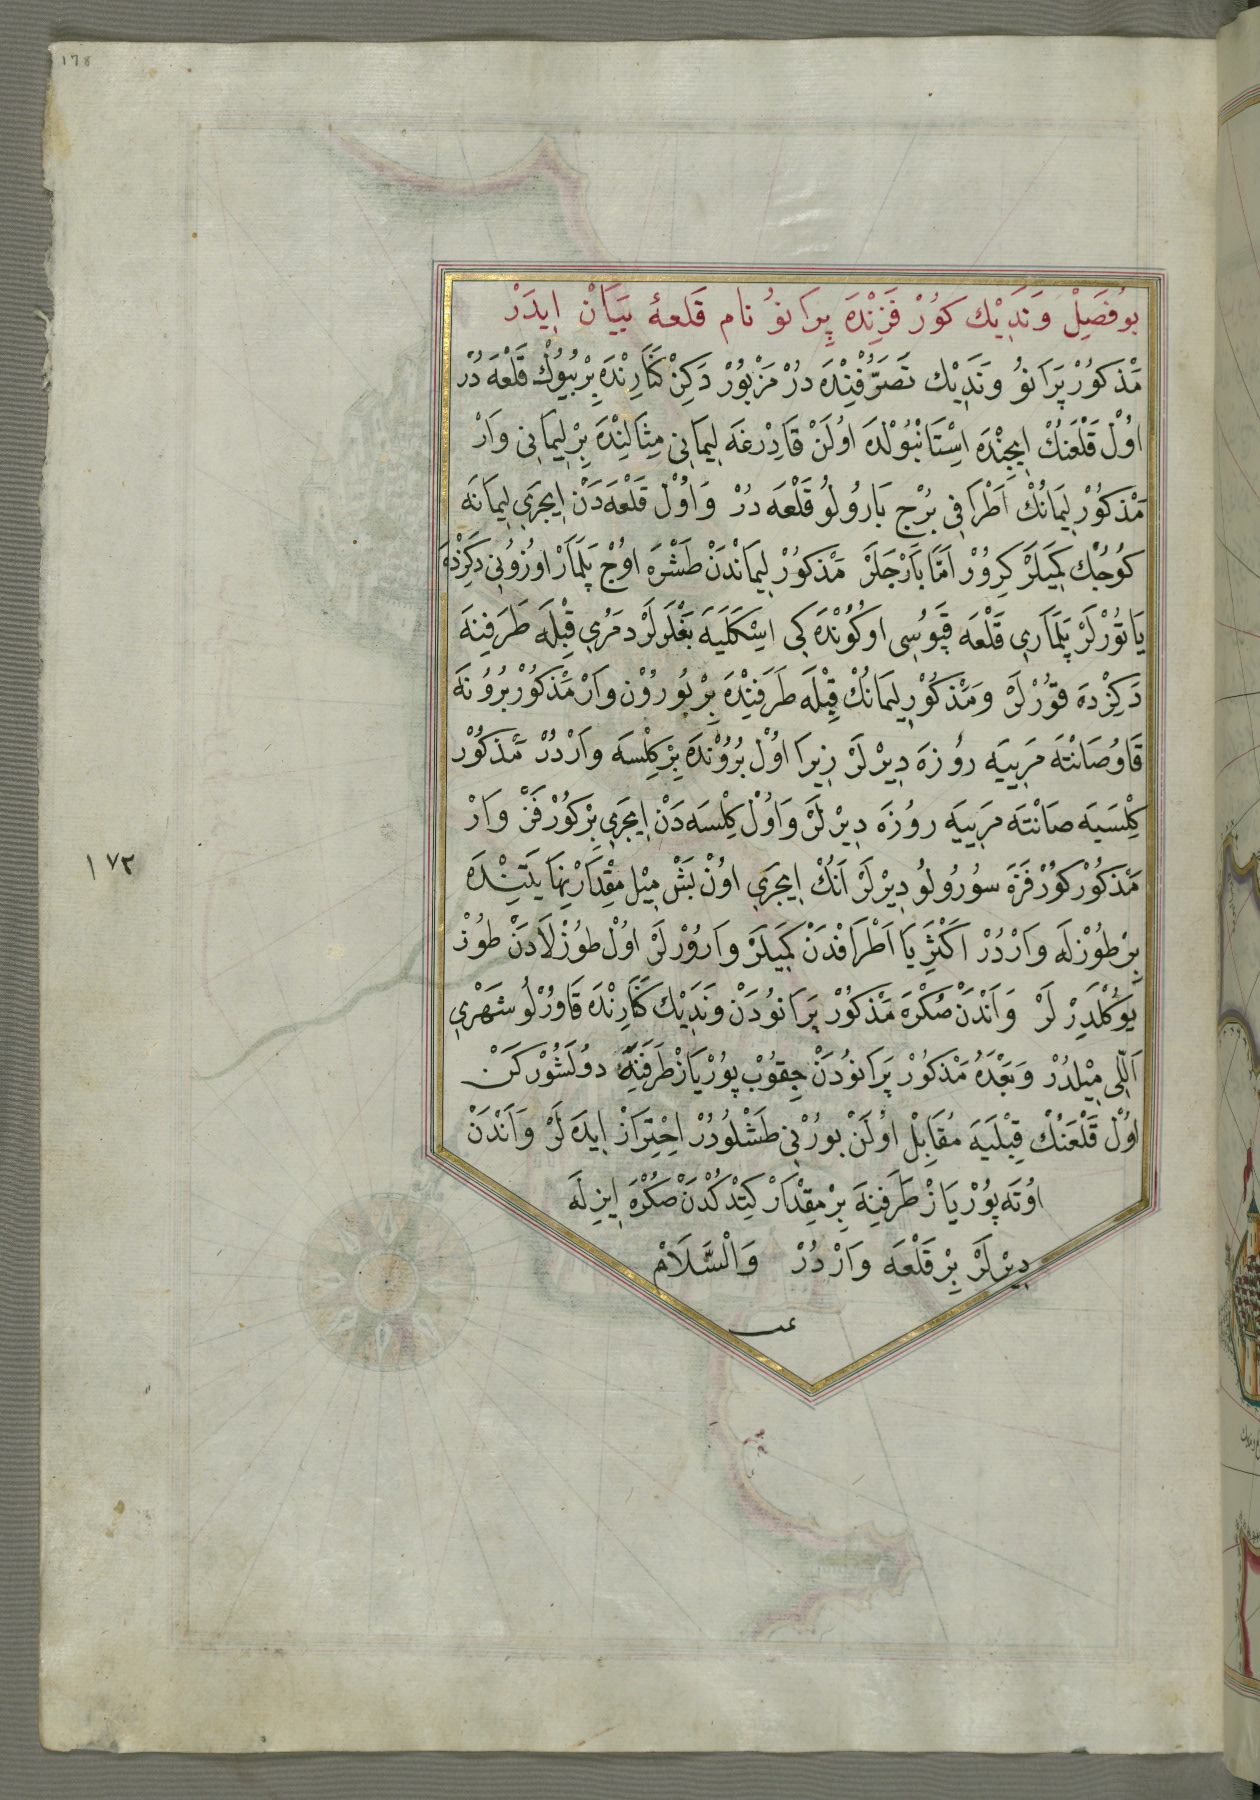 ١٦٨
بُو فَصِلْ وَنَدِيْك كُورْفَزِنْدَه پِرَانُو نَام قَلعَهٔ بَيَانْ اِيدَرْ
مَذْكُورْ پِرَانُو وَنَدِيْك تَصَرُّفِنْدَه دُرْ مَزْبُورْ دَكِزْ كَنَارِنْدَه بِرْ بُيُوكْ قَلْعَه دُرْ
اوُلْ قَلْعَنُكْ اِيچِنْدَه اِسْتَانْبُوْلدَه اوُلَنْ قَادِرْغَه لِيمَانِى مِثَالِنْدَه بِرْ لِيمَانِى وَارْ
مَذْكُورْ لِيمَانُكْ اَطْرَافِى بُرْج بَارُولُو قَلْعَه دُرْ وَاوُلْ قَلْعَه دَنْ اِيچَرِي لِيمَانَه
كُوچُك كَمِيلَرْ كِرُورْ اَمَّا بَارْجَلَرْ مَذْكُورْ لِيمَانْدَنْ طَشْرَه اوُچ پَلَمَارْ اوُزُونِى دَكِزْدَه
يَاتُورْلَرْ پَلَمَارِي قَلْعَه قَپُوسِى اوكُونْدَه كِى اِسْكَلَيَه بَغْلَرلَرْ دَمُرِي قِبْلَه طَرَفِنَه
دَكِزْدَه قُورْلَرْ وَمَذْكُورْ لِيمَانُكْ قِبْلَه طَرَفِنْدَه بِرْ بُورُوْن وَارْ مَذْكُورْ بُرُونَه
قَاوُصَانْتَه مَرِيَيه رُوزَه دِيرْلَرْ زِيرَا اوُلْ بُرُوْنْدَه بِرْ كِلِسَه وَارْدُرْ مَذْكُورْ
كِلِسَيَه صَانْتَه مَرِيَيه رُوزَه دِيرْلَرْ وَاوُلْ كِلِسَه دَنْ اِيچَرِي بِرْ كُورْفَزْ وَارْ
مَذْكُورْ كُورْفَزَه سُورُولُو دِيرْلَرْ اَنُكْ اِيچَرِي اوُنْ بَشْ مِيْل مِقْدَارْ نِهَايَتِنْدَه
بِرْ طُوزْلَه وَارْدُرْ اَكْثَرِيَا اَطْرَافْدَنْ كَمِيلَرْ وَارُورْلَرْ اوُلْ طُوزْلَادَنْ طُوزْ
يُوكْلَدِرْلَرْ وَاَنْدَنْ صُكْرَه مَذْكُورْ پِرَانُودَنْ وَنَدِيْك كَنَارِنْدَه قَاوُرْلُو شَهْرِي
اَللِّى مِيْلدُرْ وَبَعْدَهُ مَذْكُورْ پِرَانُودَنْ چِقُوبْ پُورْيَازْ طَرَفِنَه دُولَشُورْكَنْ
اوُلْ قَلْعَنُكْ قِبْلَيَه مُقَابِلْ اوُلَنْ بُورْنِى طَشْلُودُرْ اِحْتِرَازْ اِيدَه لَرْ وَاَنْدَنْ
اوُتَه پُورْيَازْ طَرَفِنَه بِرْ مِقْدَارْ كِتْدكْدَنْ صُكْرَه اِيزِلَه
دِيرْلَرْ بِرْ قَلْعَه وَارْدُرْ وَالْسَّلَامْ
١٧٢